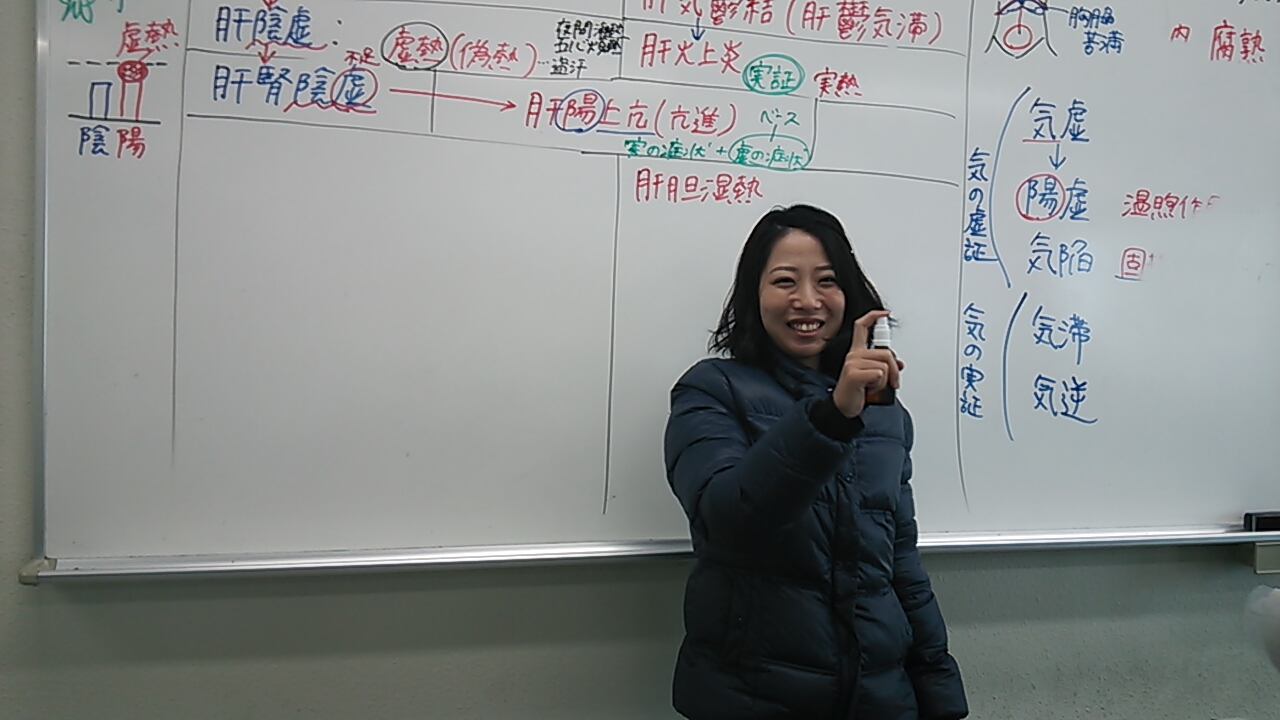 肝気鬱結(肝鬱気滞)
肝陰虚:
不足
虚熱(偽熱)
盗汗
肝火上炎
実証
実熱
肝腎陰虚
肝陽上亢(亢進)
ベース
実の症状+虚の症状
肝胆湿熱
虚熱
陰 陽
胸脇
苦満
内 腐熟
気の虚証
気虚
陽虚
温煦作
気陥
固
気の実証
気滞
気逆